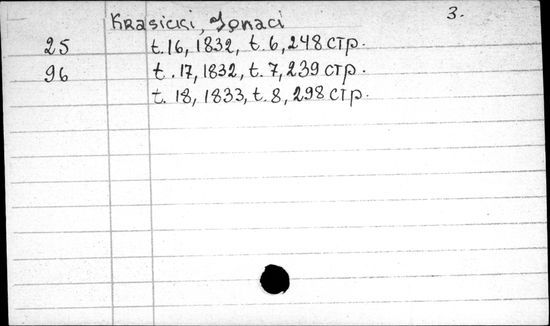 Krasicki, Ignaci 3.
25 t. 16, 1832, t. 6, 248 стр.
96 t. 17, 1832, t. 7, 239 стр.
t. 18, 1833, t. 8, 298 стр.